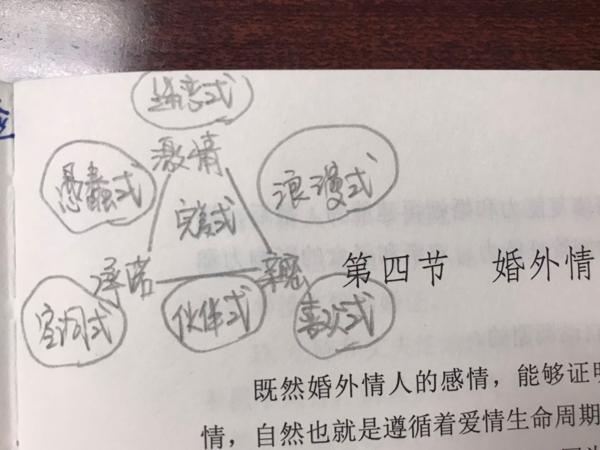 迷恋式
激情
愚蠢式
浪漫式
完美式
承诺
亲密
空洞式
伙伴式
喜欢式
第四节 婚外情
既然婚外情人的感情，能够证明
情，自然也就是遵循着爱情生命周期